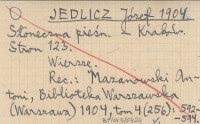 JEDLICZ Józef 1904.
Słoneczna pieśń. Kraków.
Stron 123.
Wiersze.
Rec.: Mazanowski An-
toni, Biblioteka Warszawska
(Warszawa) 1904, tom 4 (256): 592-
-594.